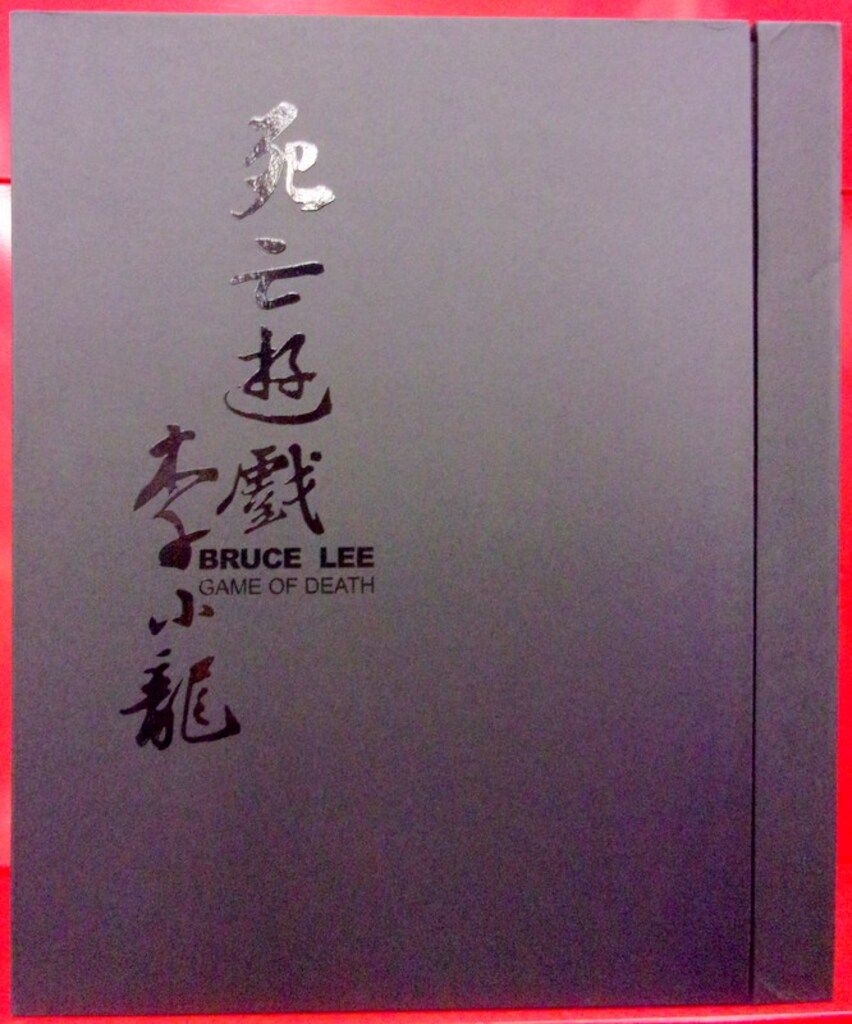 死亡遊戲
李小龍
BRUCE LEE
GAME OF DEATH